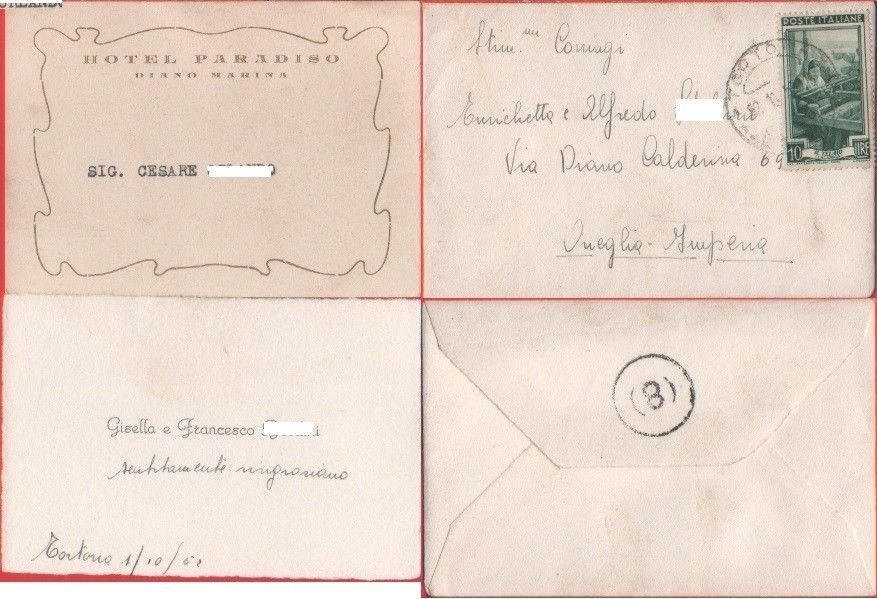 HOTEL PARADISO
DIANO MARINA
SIG. CESARE
Stim.mi Coniugi
Enrichetta e Alfredo
Via Diano Calderina 69
Oneglia-Imperia
POSTE ITALIANE
10 LIRE
TORTONA
Gisella e Francesco
sentitamente ringraziano
Tortona 1/10/52
8